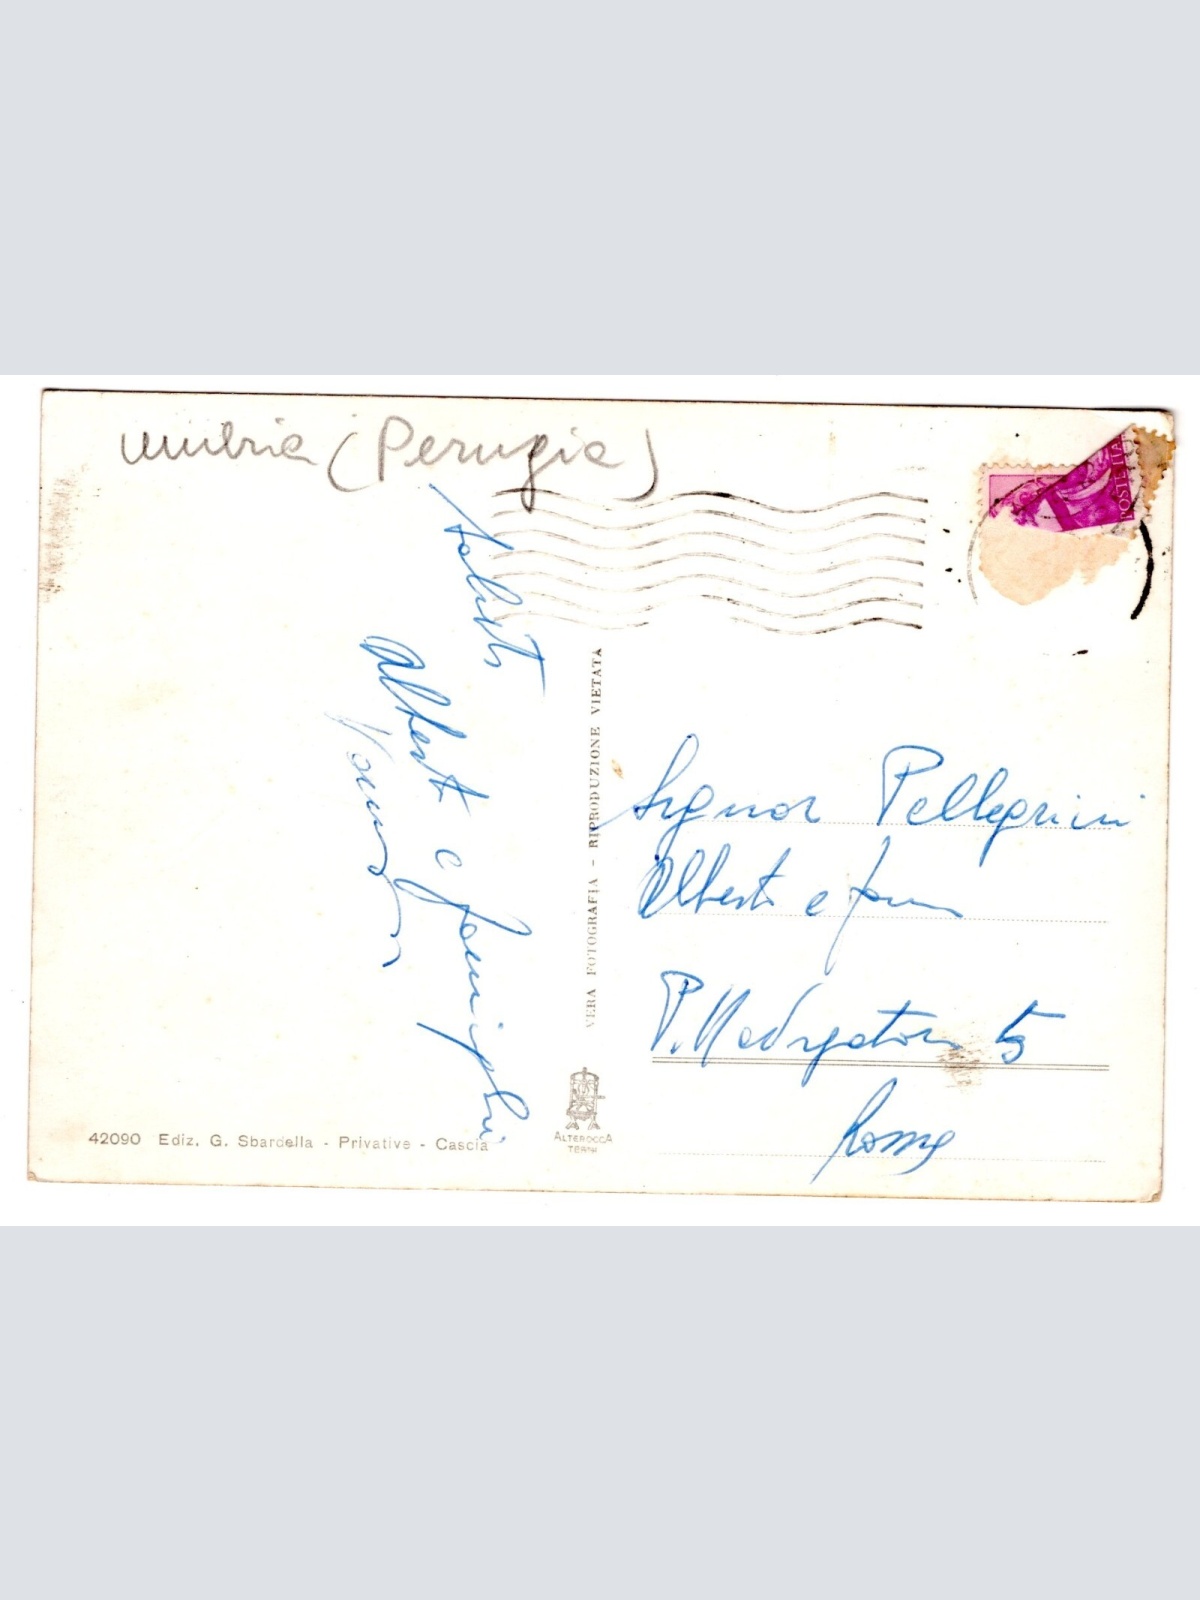 Umbria (Perugia)
POSTE ITA
Saluti
Alberto e famiglia
VERA FOTOGRAFIA - RIPRODUZIONE VIETATA
Signor Pellegrini
Alberto e fam
P. Navigatori 5
Roma
42090 Ediz. G. Sbardella - Privative - Cascia
ALTEROCCA
TERNI